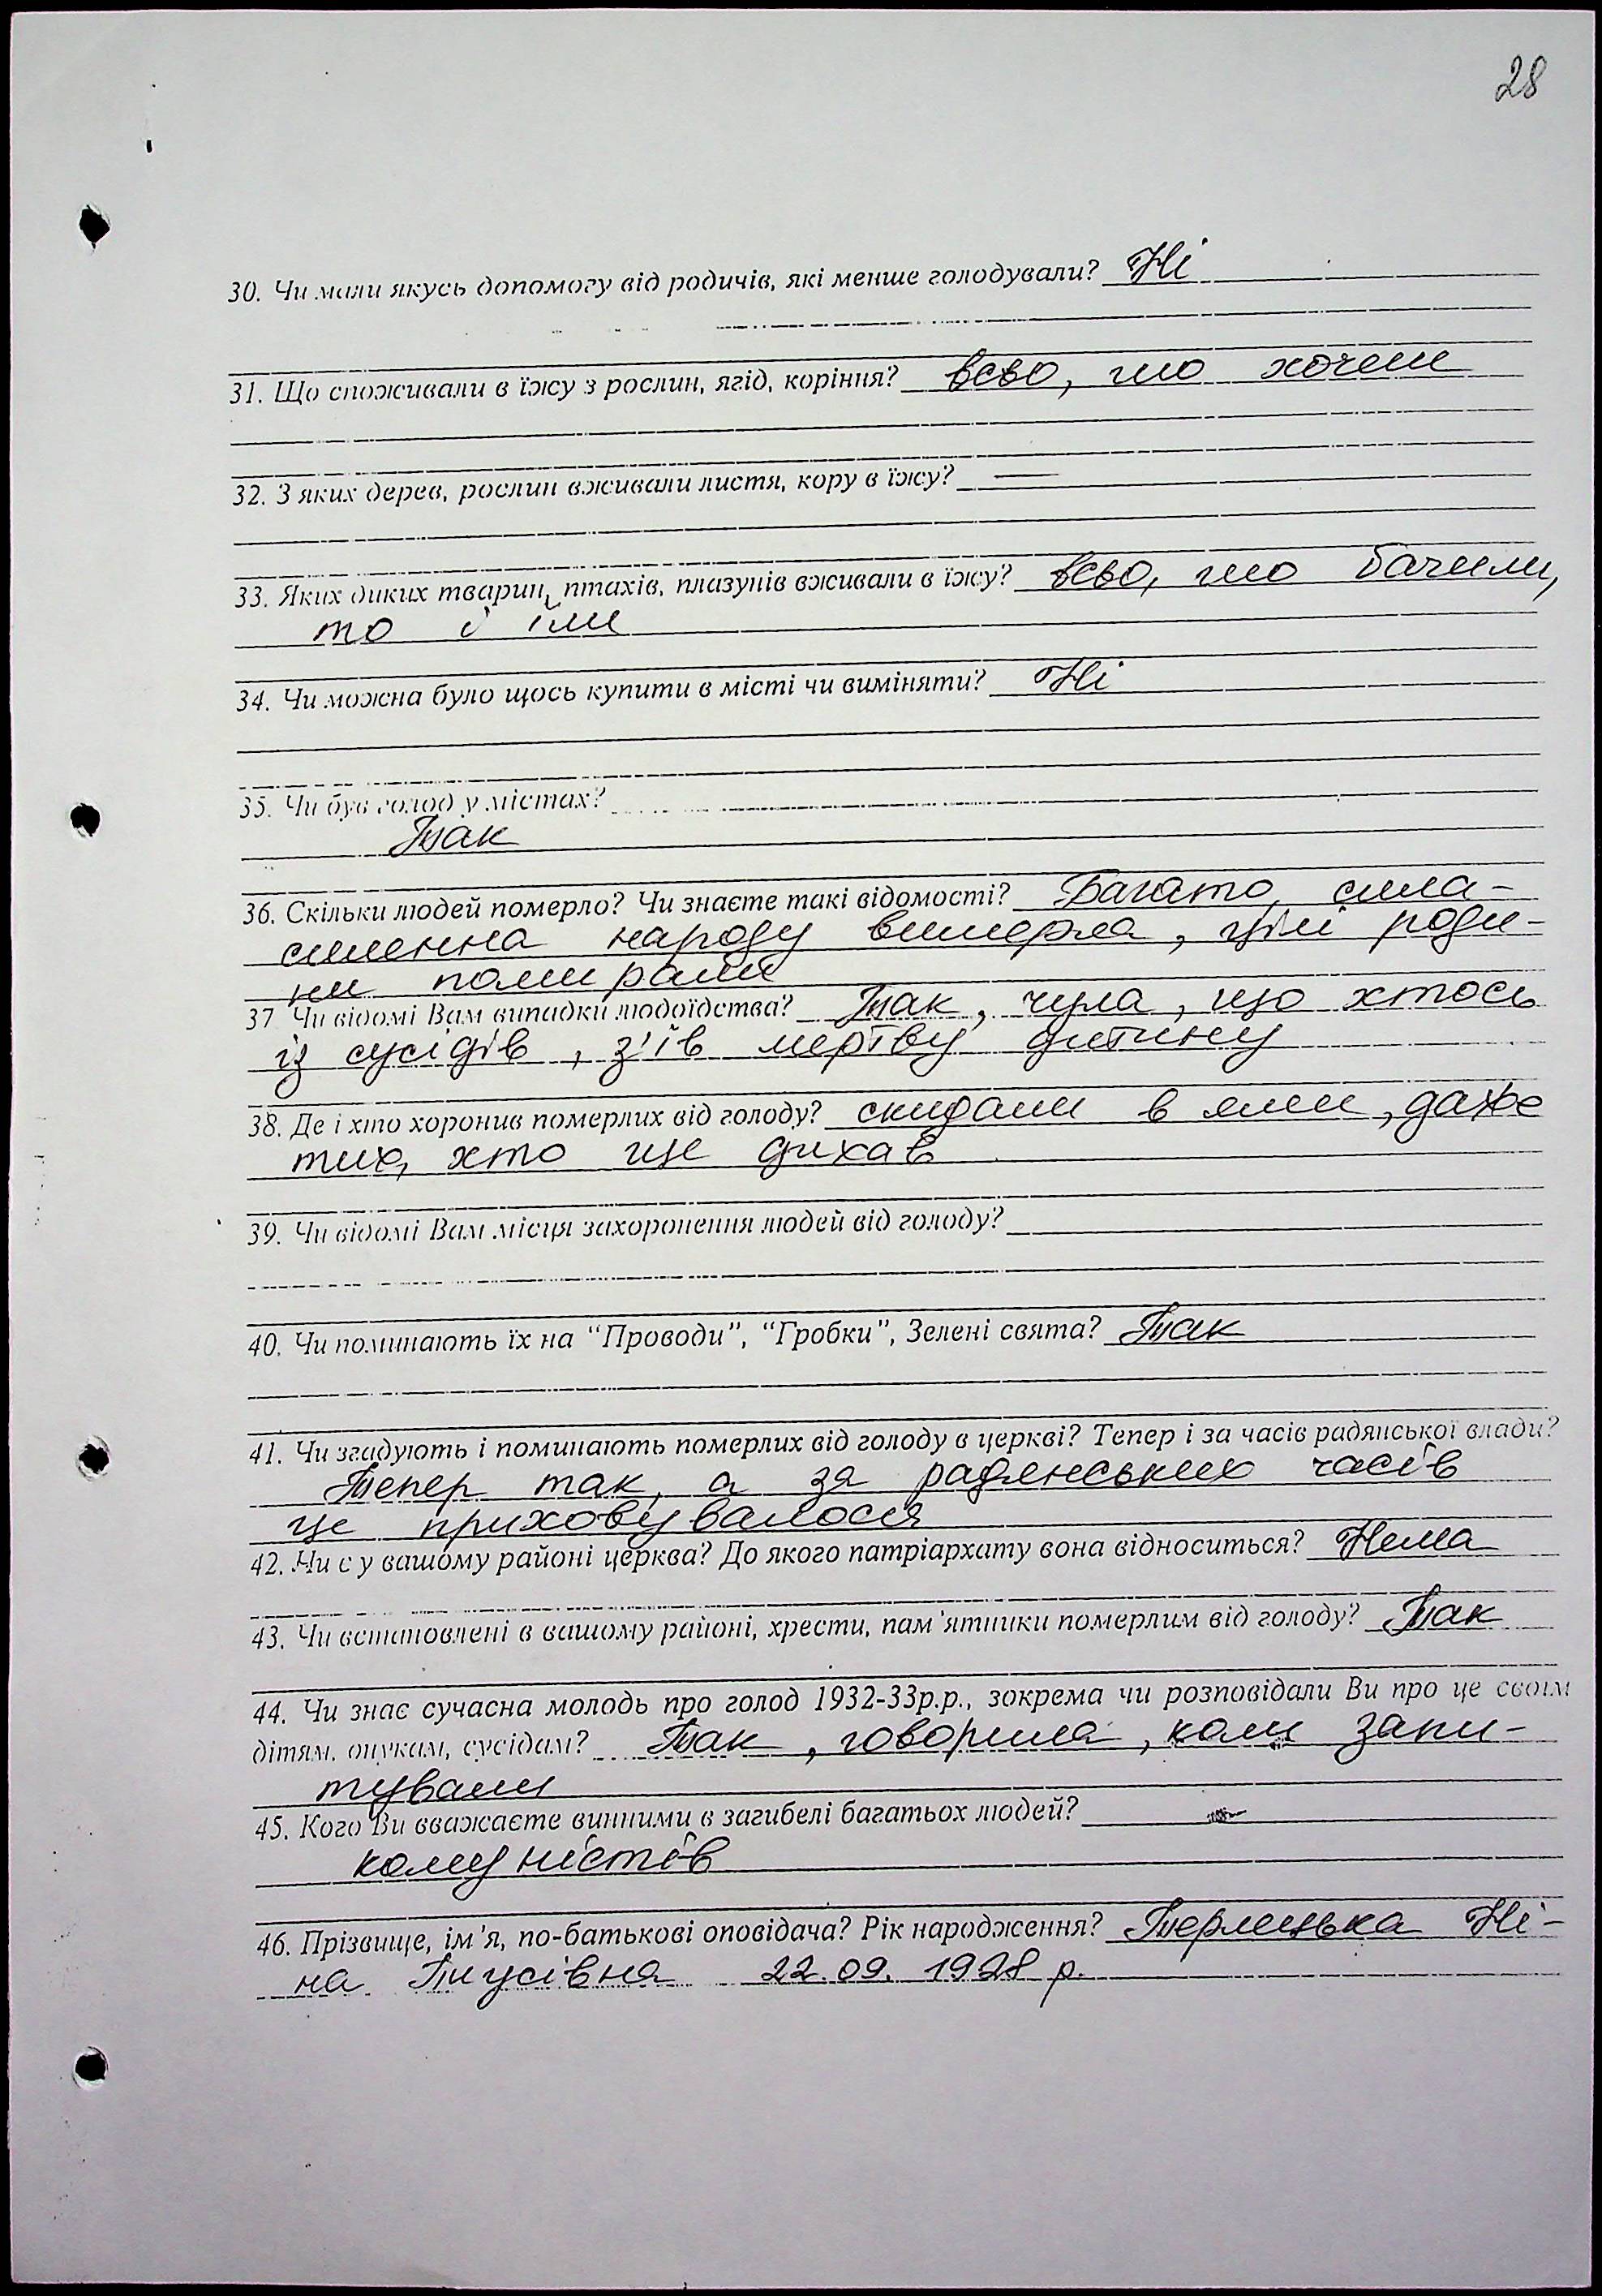 28
30. Чи мали якусь допомогу від родичів, які менше голодували? Ні
31. Що споживали в їжу з рослин, ягід, коріння? всьо, що хочеш
32. З яких дерев, рослин вживали листя, кору в їжу? —
33. Яких диких тварин, птахів, плазунів вживали в їжу? всьо, що бачили,
то і їли
34. Чи можна було щось купити в місті чи виміняти? Ні
35. Чи був голод у містах?
Так
36. Скільки людей померло? Чи знаєте такі відомості? Багато, сила-
силенна народу вимерла, цілі роди-
ни помирали
37. Чи відомі Вам випадки людоїдства? Так, чула, що хтось
із сусідів, з'їв мертву дитину
38. Де і хто хоронив померлих від голоду? скидали в ями, даже
тих, хто ще дихав
39. Чи відомі Вам місця захоронення людей від голоду?
40. Чи поминають їх на "Проводи", "Гробки", Зелені свята? Так
41. Чи згадують і поминають померлих від голоду в церкві? Тепер і за часів радянської влади?
Тепер так, а за радянських часів
це приховувалося
42. Чи є у вашому районі церква? До якого патріархату вона відноситься? Нема
43. Чи встановлені в вашому районі, хрести, пам'ятники померлим від голоду? Так
44. Чи знає сучасна молодь про голод 1932-33р.р., зокрема чи розповідали Ви про це своїм
дітям, онукам, сусідам? Так, говорила, коли запи-
тували
45. Кого Ви вважаєте винними в загибелі багатьох людей?
комуністів
46. Прізвище, ім'я, по-батькові оповідача? Рік народження? Ні-
на 22.09.1928 р.